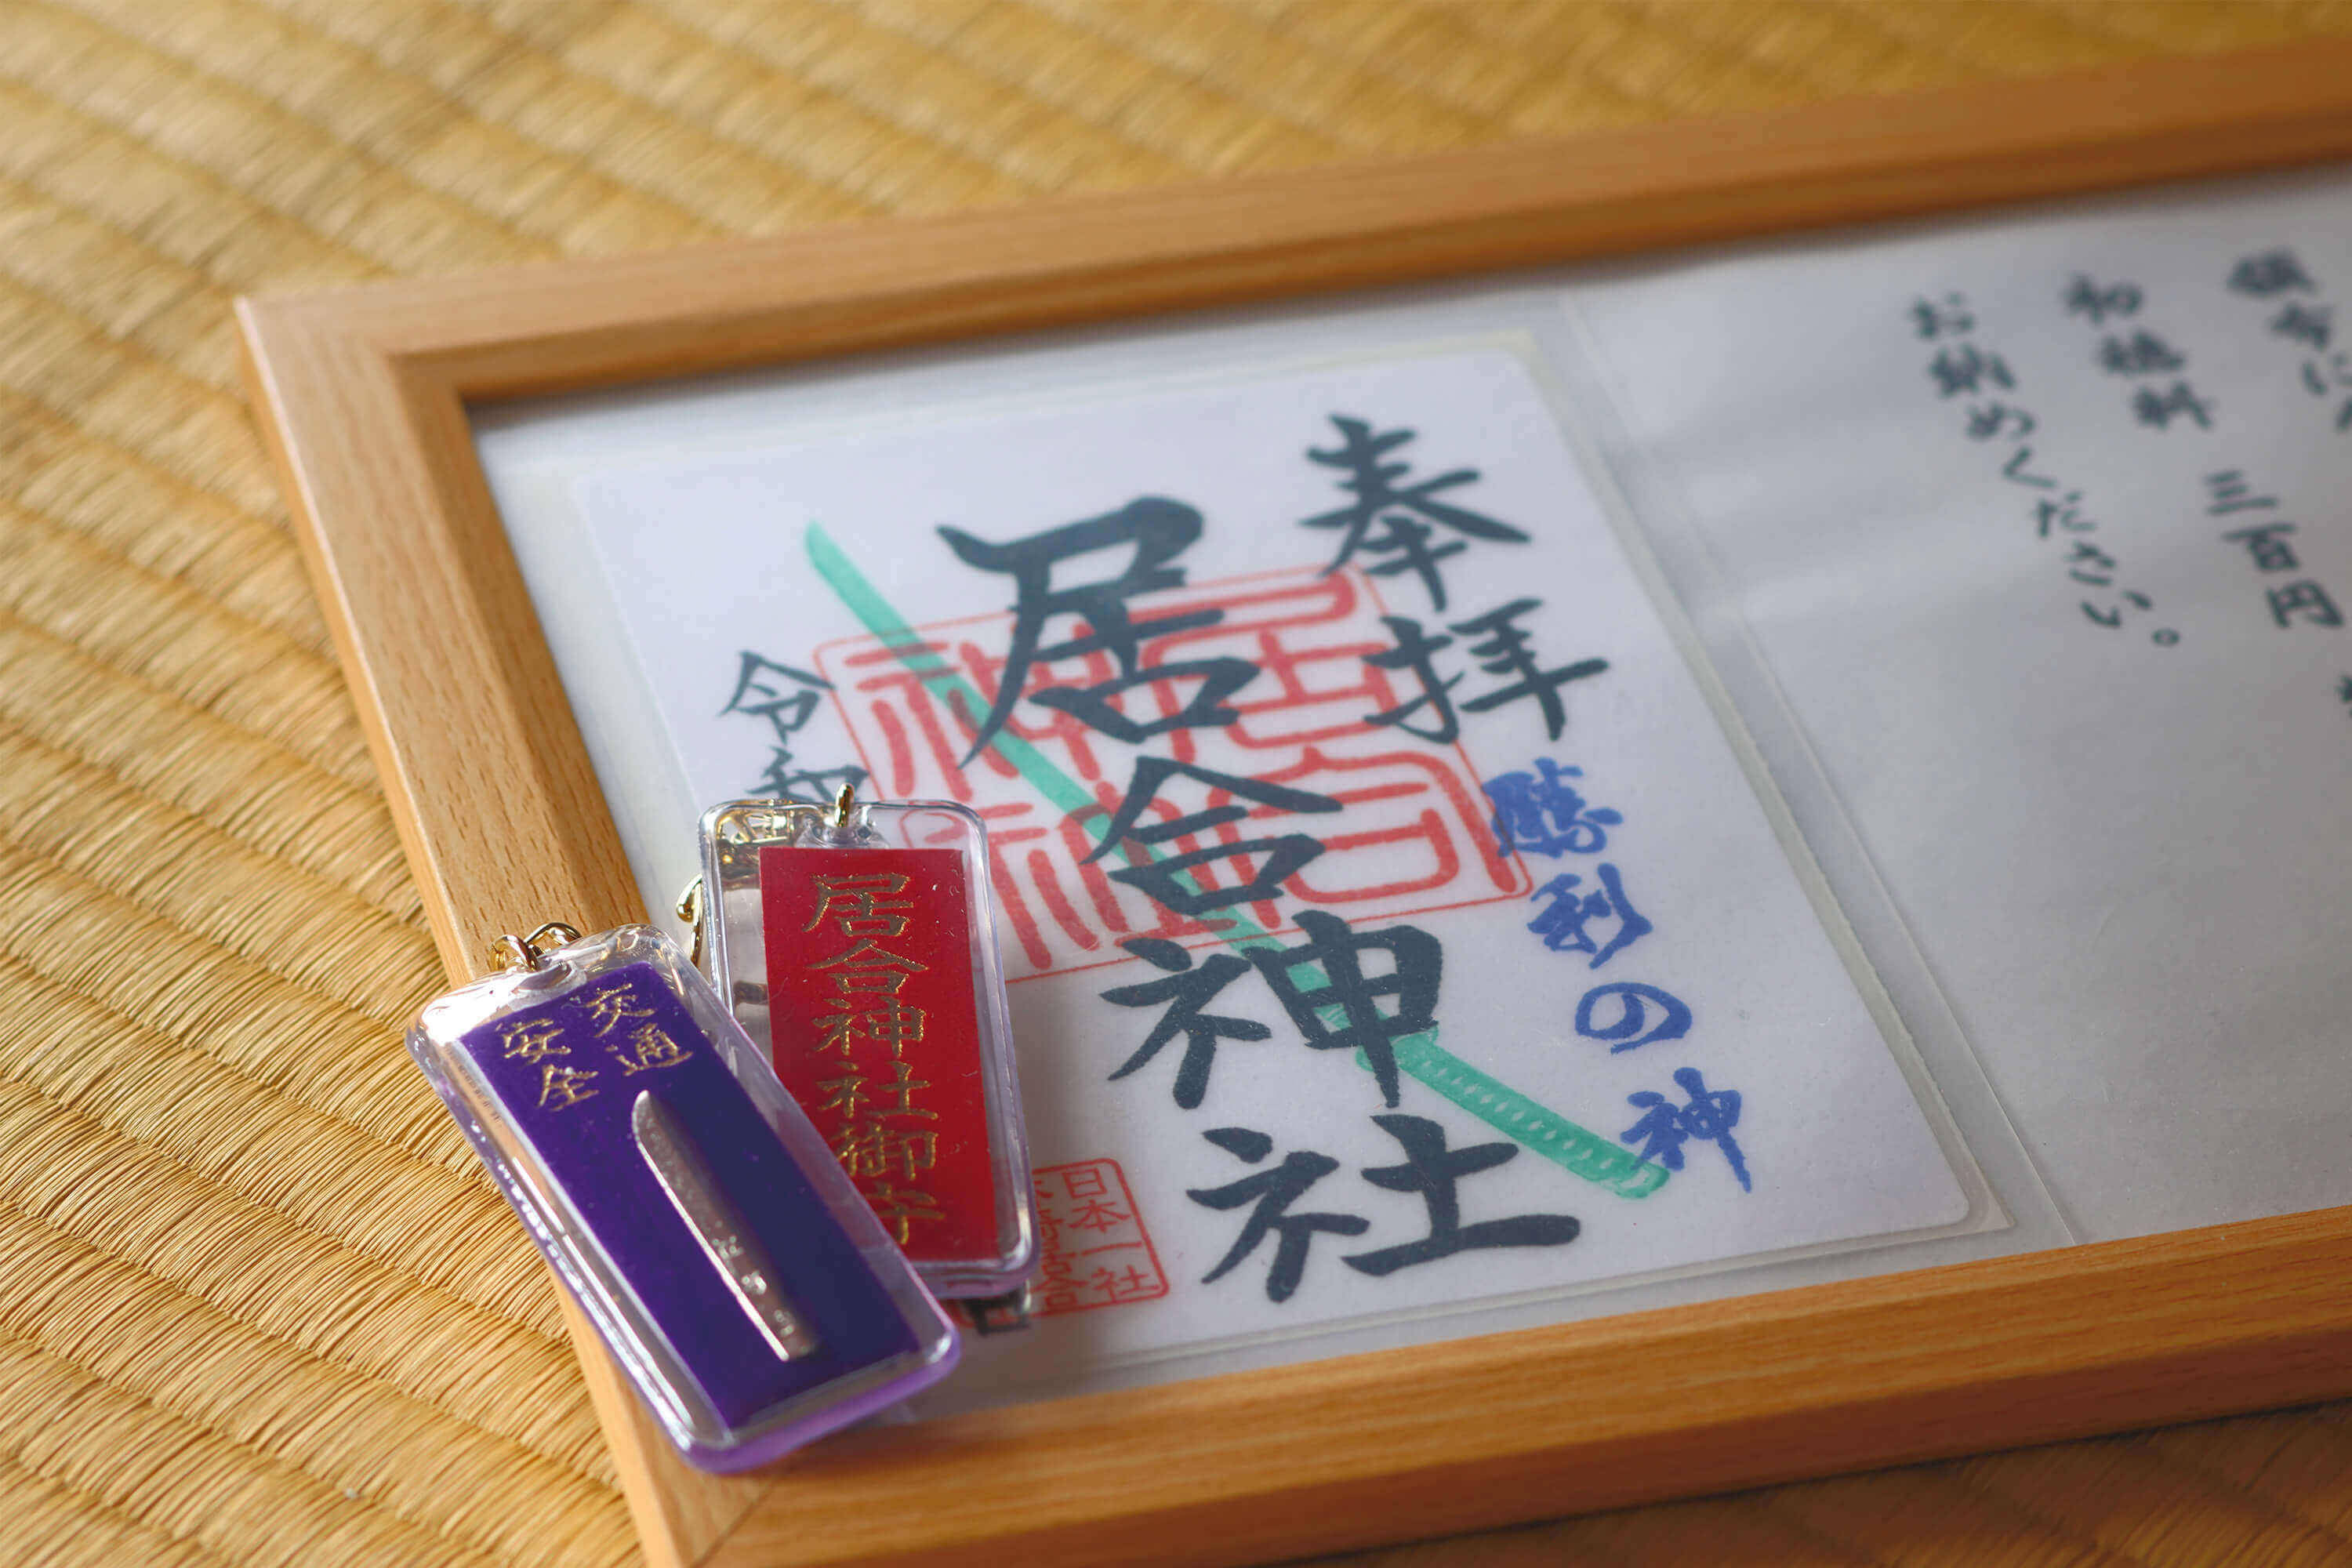 初穂料 三百円
お納めください。
奉拝
勝利の神
居合神社
居合神社
令和
日本一社
居合神社御守
交通
安全